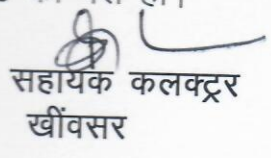 सहायक कलक्ट्रर
खींवसर